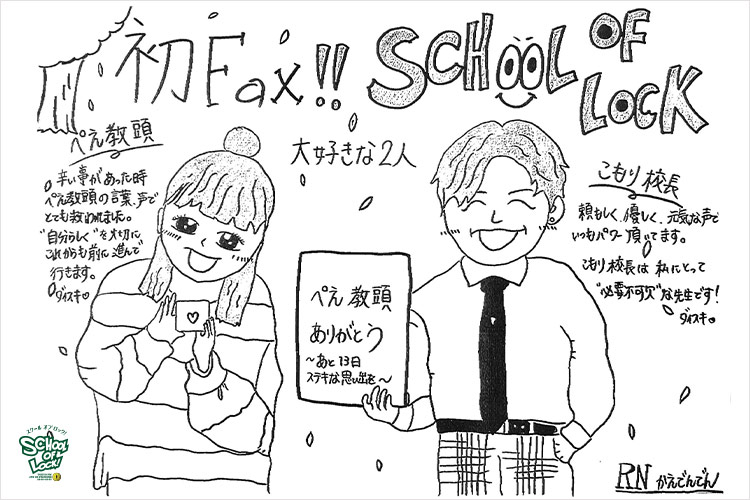 初Fax!!
SCHOOL OF LOCK
大好きな2人
ぺえ教頭
辛い事があった時
ぺえ教頭の言葉、声で
とても救われました。
"自分らしく"を大切に
これからも前に進んで
行きます。
ダイスキ♡
こもり校長
頼もしく、優しく、元気な声で
いつもパワー頂いてます。
こもり校長は私にとって
"必要不可欠"な先生です!
ダイスキ♡
ぺえ教頭
ありがとう
〜あと13日
ステキな思い出を〜
スクールオブロック!
SCHOOL
OF
LOCK!
RN かえでんでん